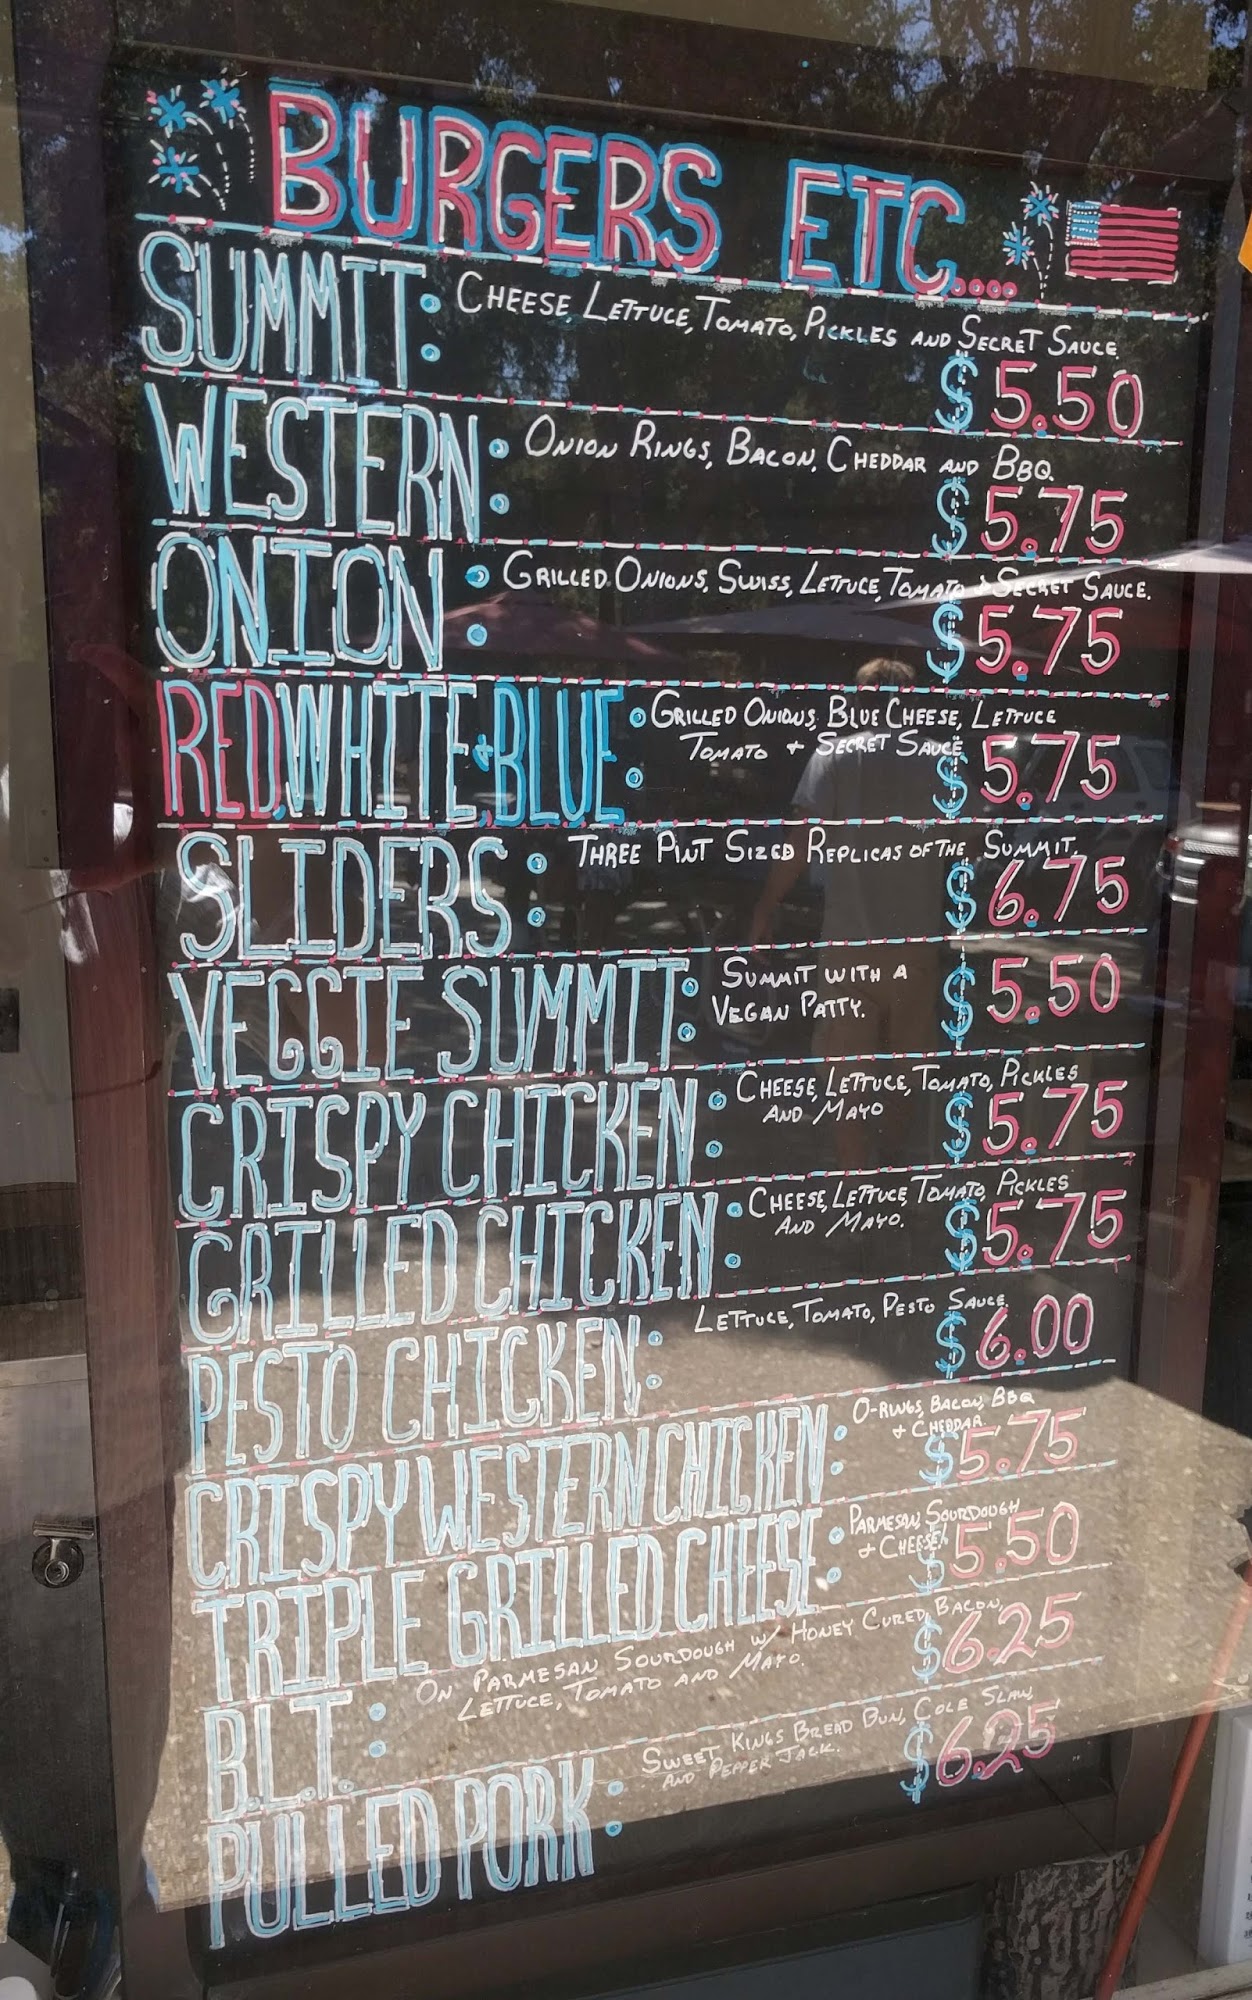 BURGERS ETC....
SUMMIT: CHEESE, LETTUCE, TOMATO, PICKLES AND SECRET SAUCE.
$5.50
WESTERN: ONION RINGS, BACON, CHEDDAR AND BBQ.
$5.75
ONION: GRILLED ONIONS, SWISS, LETTUCE, TOMATO & SECRET SAUCE.
$5.75
RED, WHITE, & BLUE: GRILLED ONIONS, BLUE CHEESE, LETTUCE
TOMATO + SECRET SAUCE
$5.75
SLIDERS: THREE PINT SIZED REPLICAS OF THE SUMMIT.
$6.75
VEGGIE SUMMIT: SUMMIT WITH A
VEGAN PATTY.
$5.50
CRISPY CHICKEN: CHEESE, LETTUCE, TOMATO, PICKLES
AND MAYO
$5.75
GRILLED CHICKEN: CHEESE, LETTUCE, TOMATO, PICKLES
AND MAYO.
$5.75
PESTO CHICKEN: LETTUCE, TOMATO, PESTO SAUCE
$6.00
CRISPY WESTERN CHICKEN: O-RINGS, BACON, BBQ
+ CHEDDAR.
$5.75
TRIPLE GRILLED CHEESE: PARMESAN SOURDOUGH
& CHEESE!
$5.50
B.L.T.: ON PARMESAN SOURDOUGH W/ HONEY CURED BACON,
LETTUCE, TOMATO AND MAYO.
$6.25
PULLED PORK: SWEET KINGS BREAD BUN, COLE SLAW
AND PEPPER JACK.
$6.25